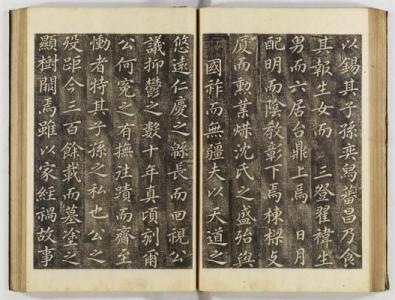 以錫其子孫奕舄蕃昌乃食
其報生女而三登翟褘生
男而六居台鼎上焉日月
配明而陰教彰下焉棟樑支
廈而勳業爍沈氏之盛殆與
國祚而無疆夫以天道之
悠遠仁慶之緜長而回視公
議抑鬱之數十年真頃刻爾
公何冤之有撫往蹟而齎至
慟者特其子孫之私也公之
歿距今三百餘載而墓塗之
顯樹闕焉雖以家經禍故事